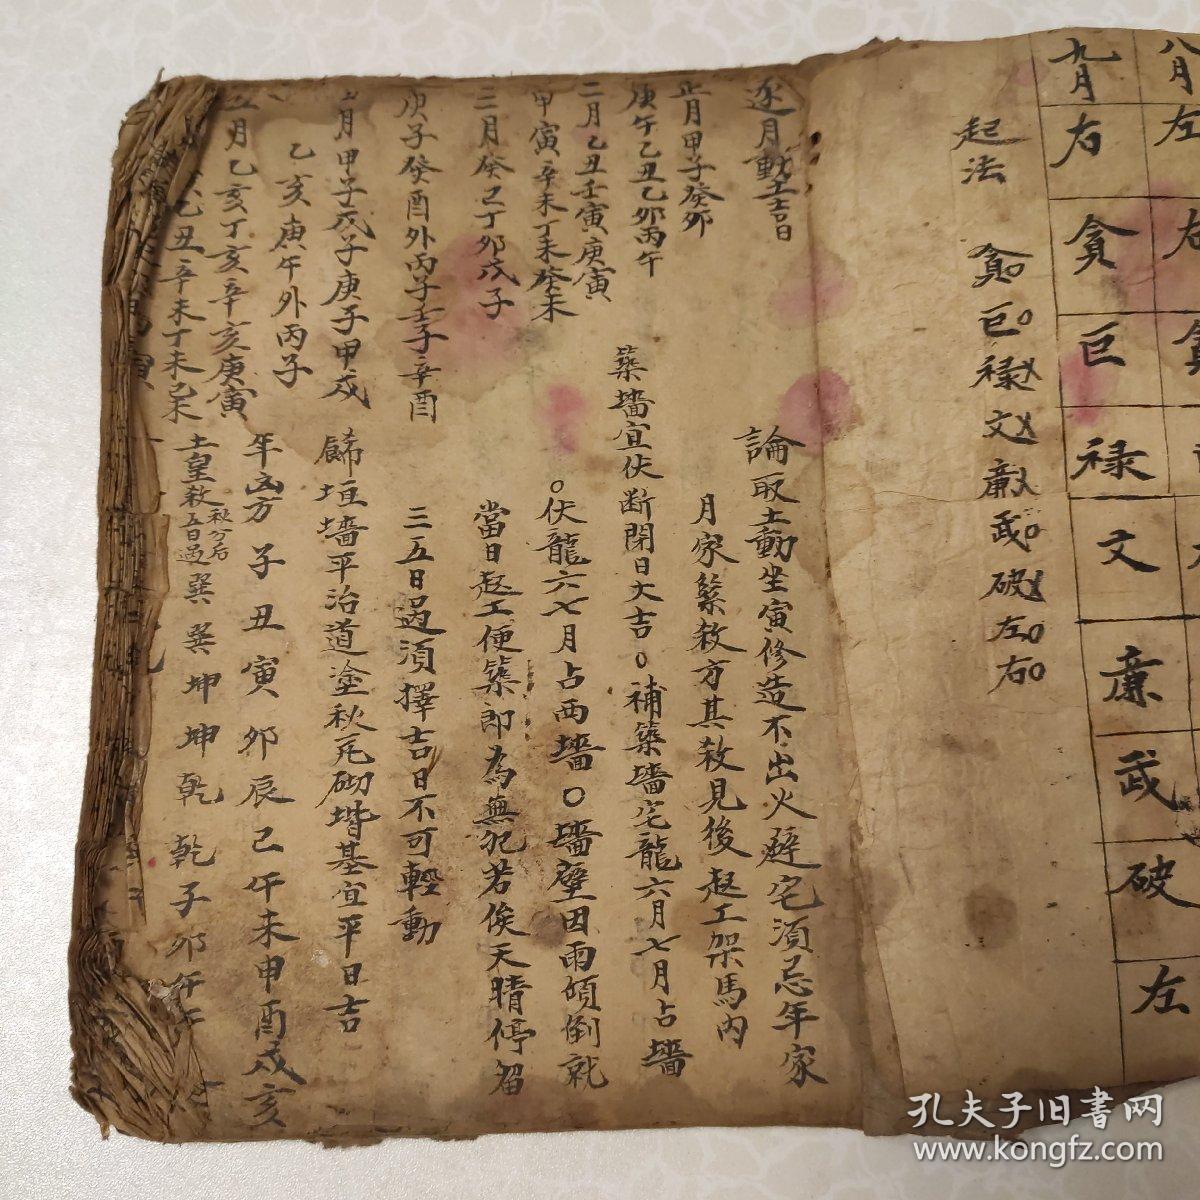 八月左
九月右貪巨祿文廉武破左
起法 貪巨祿文廉武破左右
逐月動土吉日
正月甲子癸卯
庚午乙丑乙卯丙午
二月乙丑壬寅庚寅
甲寅辛未丁未癸未
三月癸巳丁卯戊子
庚子癸酉外丙子壬子辛酉
月甲子戊子庚子甲戌
乙亥庚午外丙子
五月乙亥丁亥辛亥庚寅
乙丑辛未丁未己未
論取土動坐寅修造不出火避宅須忌年家
月家築煞方其煞見後起工架馬內
築墻宜伏斷閉日大吉○補築墻宅龍六月七月占墻
○伏龍六七月占西墻○墻壁因雨傾倒就
當日起工便築即為無犯若俟天晴停留
三五日過須擇吉日不可輕動
餙垣墻平治道塗秋瓦砌堦基宜平日吉
年凶方 子丑寅卯辰巳午未申酉戌亥
土皇煞 秋分后五日過 巽巽坤坤乾乾子卯午
孔夫子旧書网
www.kongfz.com